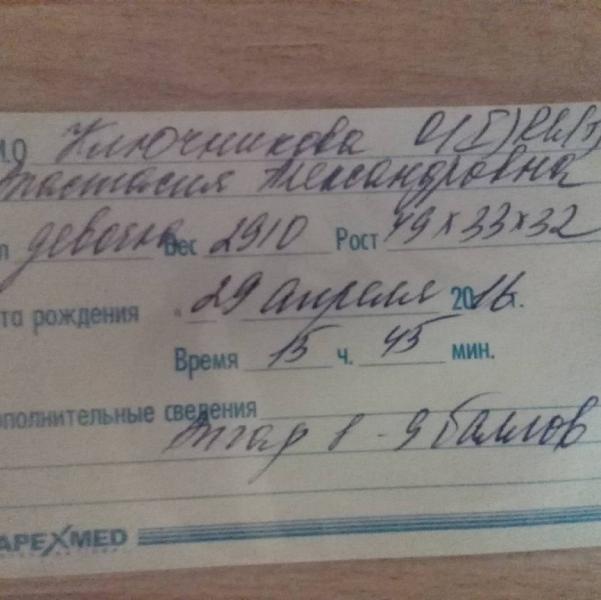 И.О Ключникова O(I)Rh(+)
Анастасия Александровна
л девочка Вес 2910 Рост 49х33х32
та рождения 29 апреля 2016г.
Время 15 ч. 45 мин.
ополнительные сведения
Апгар 8-9 баллов
APEXMED